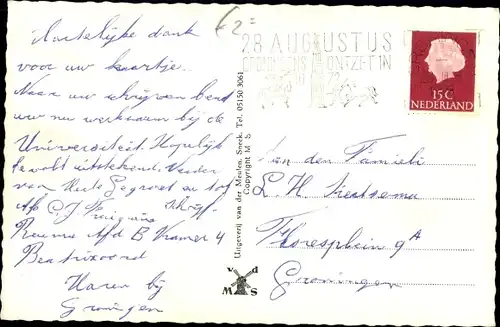 Hartelijke dank
voor uw kaartje.
Naar uw schrijven bent
uw nu werkzaam bij de
Universiteit. Hopelijk
bevalt uitstekend. Verder
van Harte Gegroet en tot
schrijf-
Afz C. J.
Reuma Afd B Kamer 4
Beatrixoord
Haren bij
Groningen
f 2=
28 AUGUSTUS
GRONINGENS ONTZET IN
15C
NEDERLAND
Uitgeverij van der Meulen, Sneek. Tel. 05150 3061
Copyright M S
v d
M S
Aan den Familie
L. H.
Floresplein 9A
Groningen